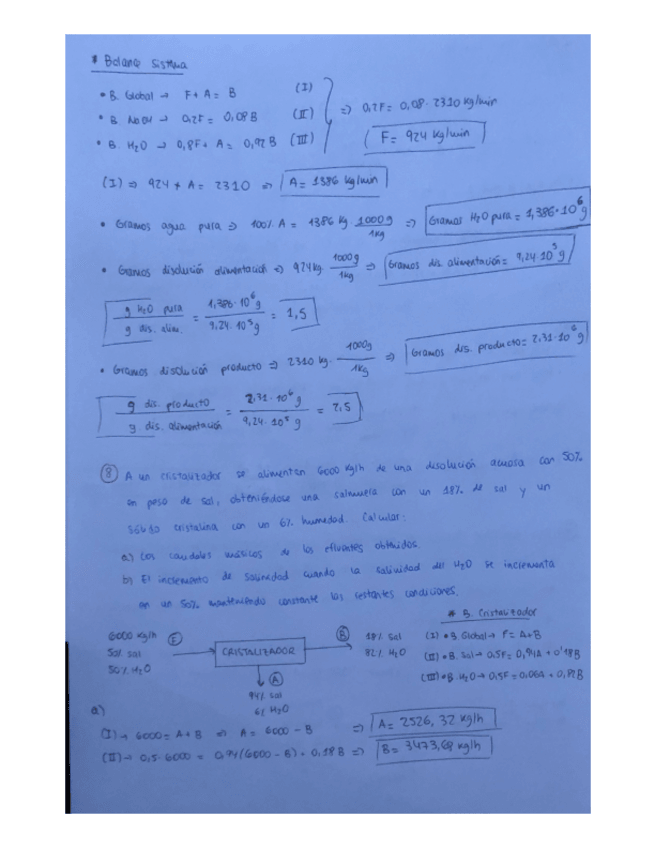 * Balance Sistema
• B. Global → F + A = B (I)
• B. NaOH → 0,2F = 0,08B (II) ⇒ 0,2F = 0,08 · 2310 kg/min
• B. H2O → 0,8F + A = 0,92B (III) F = 924 kg/min
(I) ⇒ 924 + A = 2310 ⇒ A = 1386 kg/min
• Gramos agua pura ⇒ 100% A = 1386 kg · 1000g / 1kg ⇒ Gramos H2O pura = 1,386 · 10^6 g
• Gramos disolución alimentación ⇒ 924 kg · 1000g / 1kg ⇒ Gramos dis. alimentación = 9,24 · 10^5 g
g H2O pura / g dis. alim. = 1,386 · 10^6 g / 9,24 · 10^5 g = 1,5
• Gramos disolución producto ⇒ 2310 kg · 1000g / 1kg ⇒ Gramos dis. producto = 2,31 · 10^6 g
g dis. producto / g dis. alimentación = 2,31 · 10^6 g / 9,24 · 10^5 g = 2,5
⑧ A un cristalizador se alimentan 6000 kg/h de una disolución acuosa con 50%
en peso de sal, obteniéndose una salmuera con un 18% de sal y un
sólido cristalino con un 6% humedad. Calcular:
a) Los caudales másicos de los efluentes obtenidos.
b) El incremento de salinidad cuando la salinidad del H2O se incrementa
en un 50% manteniendo constante las restantes condiciones.
* B. Cristalizador
6000 kg/h F CRISTALIZADOR B 18% sal (I) • B. Global → F = A + B
50% sal 82% H2O (II) • B. Sal → 0,5F = 0,94A + 0'18B
50% H2O A (III) • B. H2O → 0,5F = 0,06A + 0,82B
94% sal
6% H2O
a)
(I) → 6000 = A + B ⇒ A = 6000 - B ⇒ A = 2526,32 kg/h
(II) → 0,5 · 6000 = 0,94(6000 - B) + 0,18B ⇒ B = 3473,68 kg/h